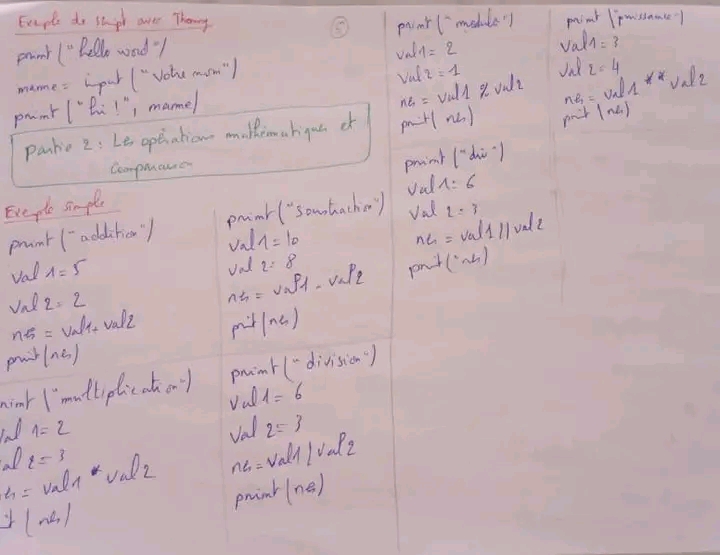 Exemple de script avec Thonny
print("hello word")
name = input("Votre nom")
print("hi!", name)
5
Partie 2 : Les opérations mathématiques et
comparaison
Exemple simple
print("addition")
val1=5
val2=2
res = val1+val2
print(res)
print("multiplication")
val 1=2
val 2=3
res = val1 * val2
print(res)
print("soustraction")
val1=10
val2=8
res = val1 - val2
print(res)
print("division")
val1=6
val2=3
res=val1/val2
print(res)
print("modulo")
val1=2
val2=1
res = val1 % val2
print(res)
print("div")
val1=6
val2=3
res = val1//val2
print("res)
print("puissance")
val1=3
val2=4
res = val1 ** val2
print(res)